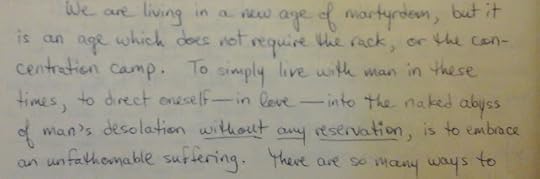 We are living in a new age of martyrdom, but it
is an age which does not require the rack, or the con-
centration camp. To simply live with man in these
times, to direct oneself—in love—into the naked abyss
of man's desolation without any reservation, is to embrace
an unfathomable suffering. There are so many ways to